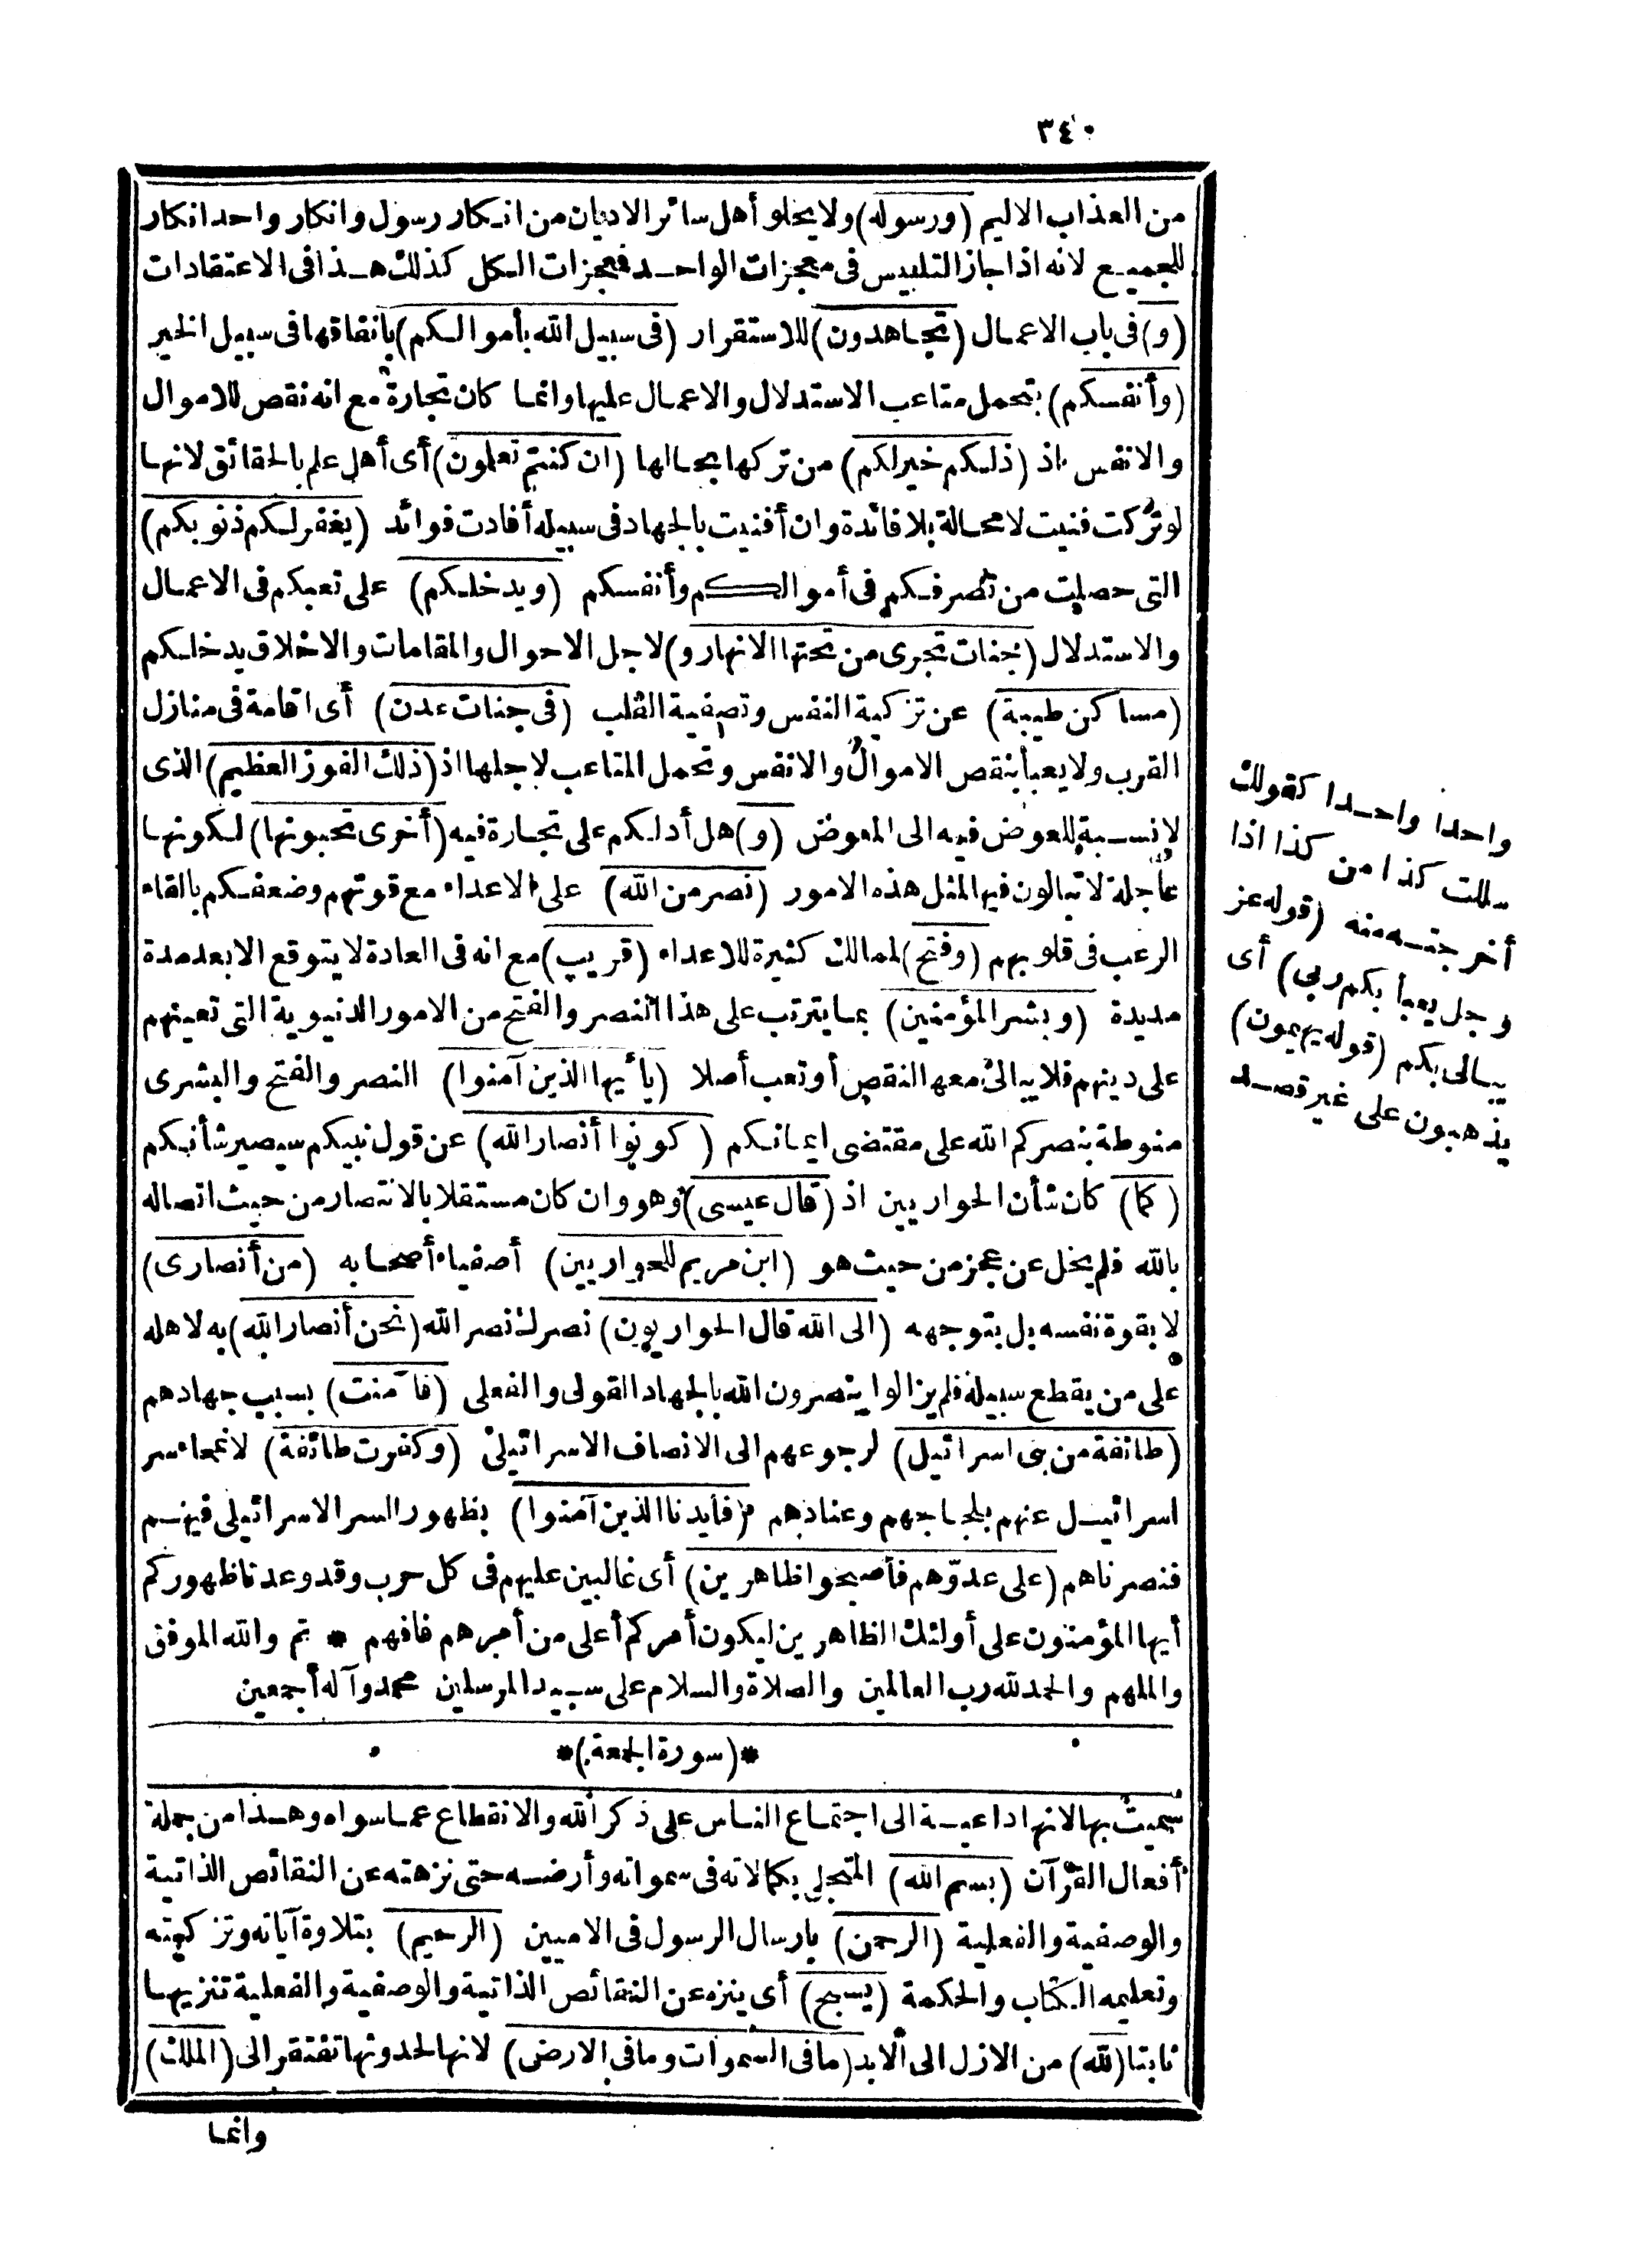 ٣٤٠
من العذاب الاليم (ورسوله) ولا يخلو أهل سائر الاديان من انكار رسول وانكار واحد انكار
للجميع لانه اذا جاز التلبيس فى معجزات الواحد فمعجزات الكل كذلك هذا فى الاعتقادات
(و) فى باب الاعمال (تجاهدون) للاستقرار (فى سبيل الله بأموالكم) بانفاقها فى سبيل الخير
(وأنفسكم) بتحمل متاعب الاستدلال والاعمال عليها وانما كان تجارة مع انه نقص للاموال
والانفس اذ (ذلكم خير لكم) من تركها بحالها (ان كنتم تعلمون) أى أهل علم بالحقائق لانها
لو تركت فنيت لا محالة بلا فائدة وان أفنيت بالجهاد فى سبيله أفادت فوائد (يغفر لكم ذنوبكم)
التى حصلت من تصرفكم فى أموالكم وأنفسكم (ويدخلكم) على تعبكم فى الاعمال
والاستدلال (جنات تجرى من تحتها الانهار و) لاجل الاحوال والمقامات والاخلاق يدخلكم
(مساكن طيبة) عن تزكية النفس وتصفية القلب (فى جنات عدن) أى اقامة فى منازل
القرب ولا يعبأ بنقص الاموال والانفس وتحمل المتاعب لاجلها اذ (ذلك الفوز العظيم) الذى
لا نسبة للعوض فيه الى المعوض (و) هل أدلكم على تجارة فيه (أخرى تحبونها) لكونها
عاجلة لا تبالون فيها لمثل هذه الامور (نصر من الله) على الاعداء مع قوتهم وضعفكم بالقاء
الرعب فى قلوبهم (وفتح) لممالك كثيرة للاعداء (قريب) مع انه فى العادة لا يتوقع الا بعد مدة
مديدة (وبشر المؤمنين) بما يترتب على هذا النصر والفتح من الامور الدنيوية التى تعينهم
على دينهم فلا يبالى معها النقص أو تعب أصلا (يا أيها الذين آمنوا) النصر والفتح والبشرى
منوطة بنصركم الله على مقتضى ايمانكم (كونوا أنصار الله) عن قول نبيكم سيصير شأنكم
(كما) كان شأن الحواريين اذ (قال عيسى) وهو وان كان مستقلا بالانتصار من حيث اتصاله
بالله فلم يخل عن عجز من حيث هو (ابن مريم للحواريين) أصفياء أصحابه (من أنصارى)
لا بقوة نفسه بل بتوجهه (الى الله قال الحواريون) نصرك نصر الله (نحن أنصار الله) به لاهله
على من يقطع سبيله فلم يزالوا ينصرون الله بالجهاد القولى والفعلى (فآمنت) بسبب جهادهم
(طائفة من بنى اسرائيل) لرجوعهم الى الانصاف الاسرائيلى (وكفرت طائفة) لانمحاء سر
اسرائيل عنهم بلجاجهم وعنادهم (فأيدنا الذين آمنوا) بظهور السر الاسرائيلى فيهم
فنصرناهم (على عدوّهم فأصبحوا ظاهرين) أى غالبين عليهم فى كل حرب وقد وعدنا ظهوركم
أيها المؤمنون على أولئك الظاهرين ليكون أمركم أعلى من أمرهم فافهم * تم والله الموفق
والملهم والحمد لله رب العالمين والصلاة والسلام على سيد المرسلين محمد وآله أجمعين
*(سورة الجمعة)*
سميت بها لانها داعية الى اجتماع الناس على ذكر الله والانقطاع عما سواه وهذا من جملة
أفعال القرآن (بسم الله) المتجلى بكمالاته فى سمواته وأرضه حتى نزهته عن النقائص الذاتية
والوصفية والفعلية (الرحمن) بارسال الرسول فى الاميين (الرحيم) بتلاوة آياته وتزكيته
وتعليمه الكتاب والحكمة (يسبح) أى ينزه عن النقائص الذاتية والوصفية والفعلية تنزيها
ثابتا (لله) من الازل الى الابد (ما فى السموات وما فى الارض) لانها لحدوثها تفتقر الى (الملك)
وانما
واحدا واحدا كقولك
سللت كذا من كذا اذا
أخرجته منه (قوله عز
وجل يعبأ بكم ربى) أى
يبالى بكم (قوله يهيمون)
يذهبون على غير قصد